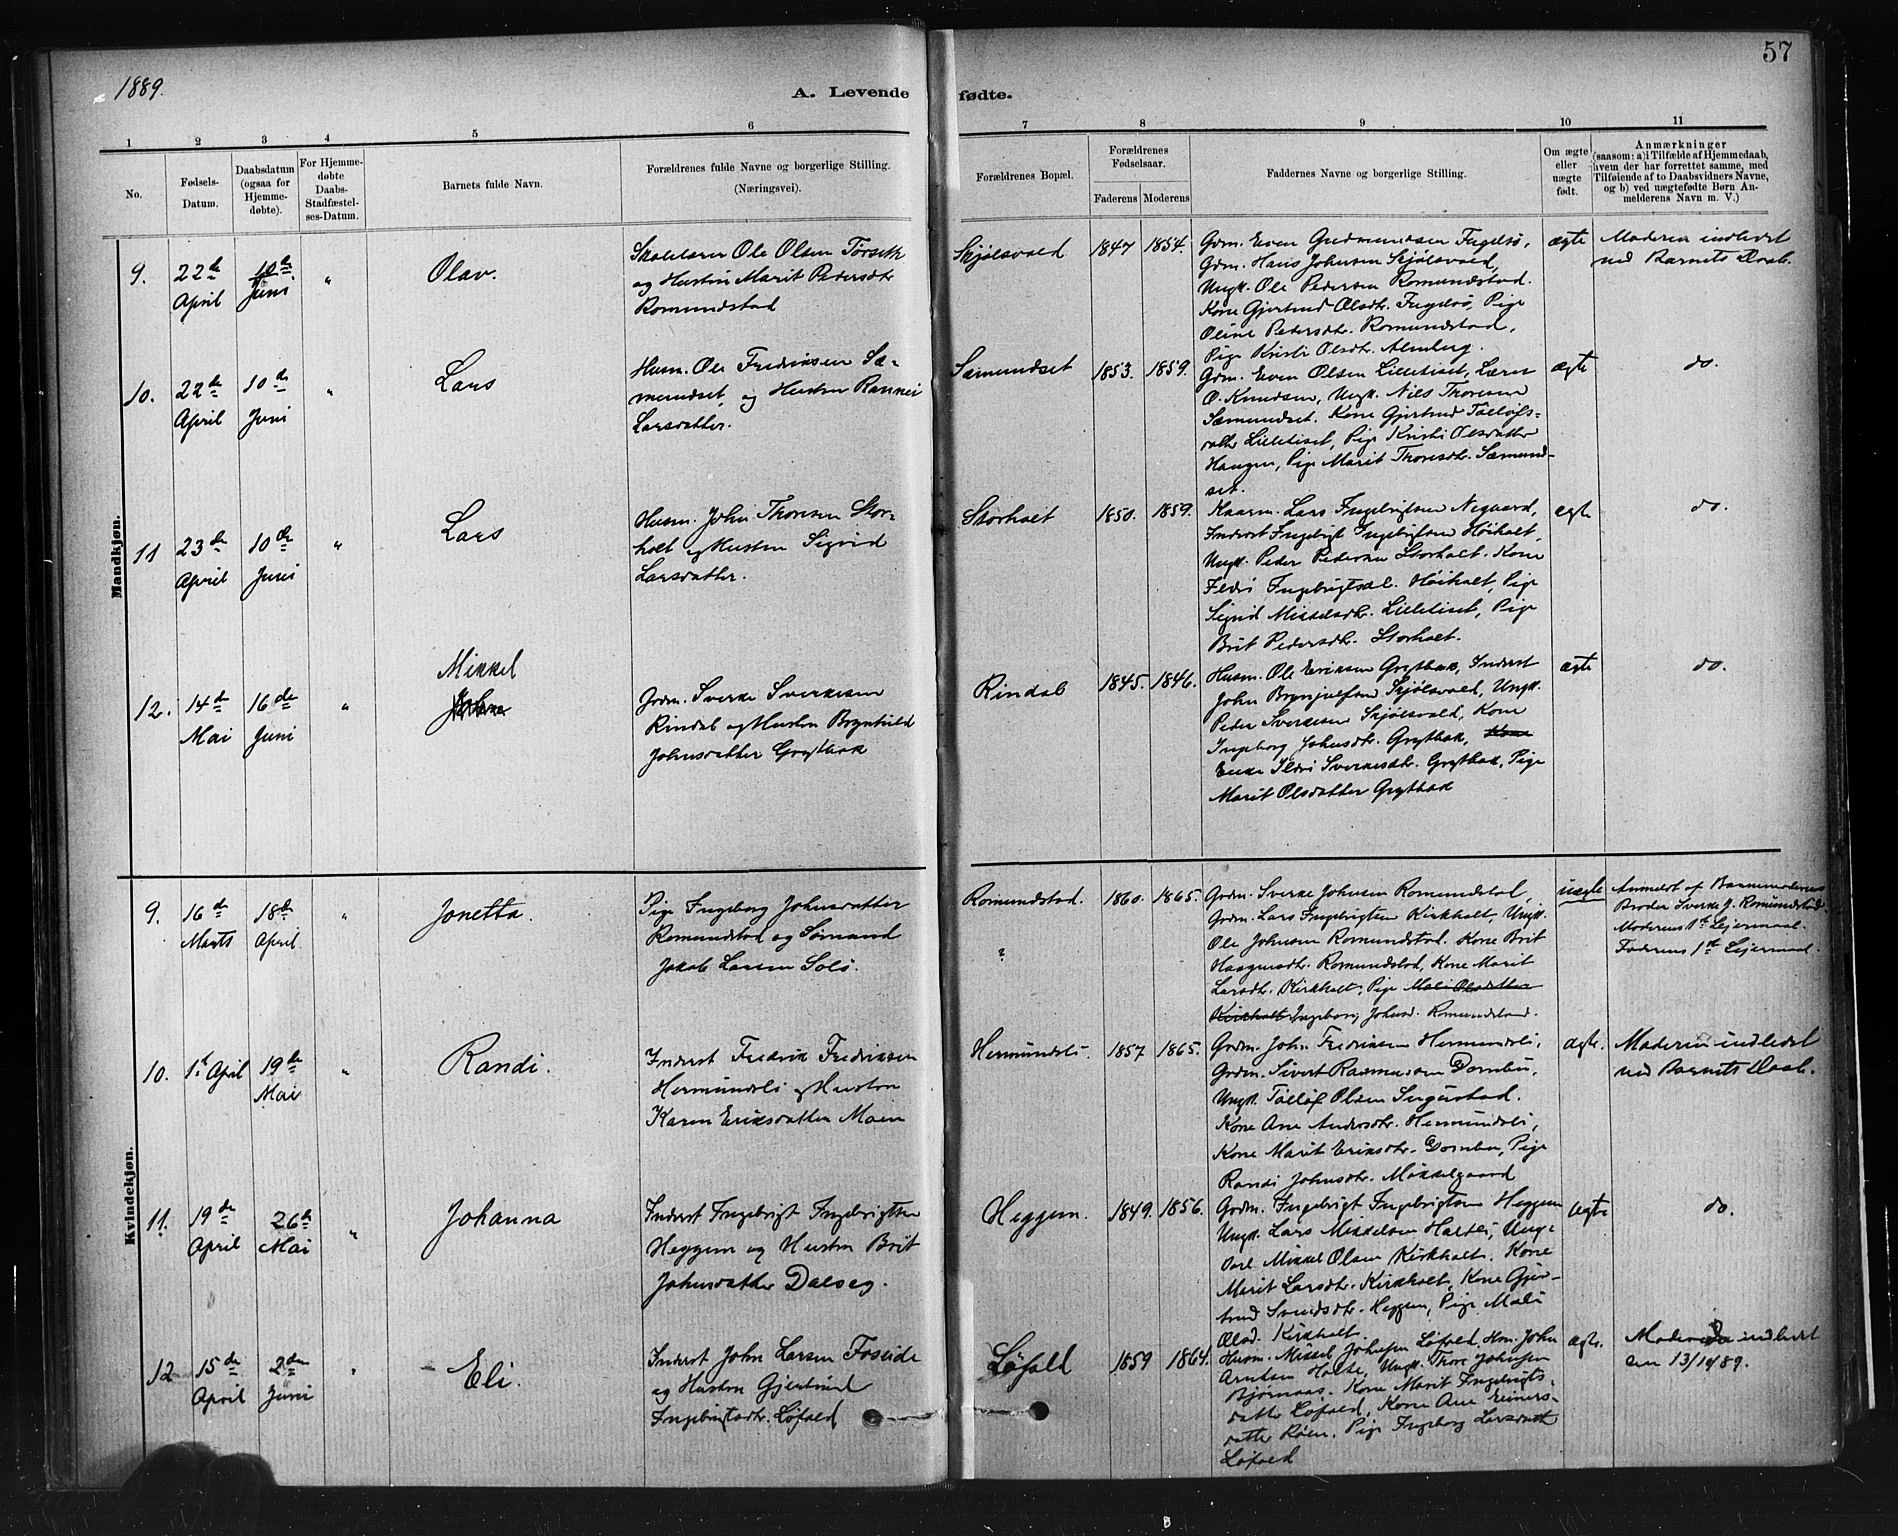 57
1889.
A. Levende fødte.
1 2 3 4 5 6 7 8 9 10 11
No.
Fødsels-
Datum.
Daabsdatum
(ogsaa for
Hjemme-
døbte).
For Hjemme-
døbte
Daabs-
Stadfæstel-
ses-Datum.
Barnets fulde Navn.
Forældrenes fulde Navne og borgerlige Stilling.
(Næringsvei).
Forældrenes Bopæl.
Forældrenes
Fødselsaar.
Faderens Moderens
Faddernes Navne og borgerlige Stilling.
Om ægte
eller
uægte
født.
Anmærkninger
(saasom: a) i Tilfælde af Hjemmedaab,
hvem der har forrettet samme, med
Tilføiende af to Daabsvidners Navne,
og b) ved uægtefødte Børn An-
melderens Navn m. V.)
Mandkjøn.
9.
22de
April
10de
Juni
"
Olav.
Ole Olsen Tørseth
og Hustru Marit Pedersdtr
Romundstad
Skjølsvold
1847 1854.
Gdm. Even Gudmundsen Fugelsø,
Gdm. Hans Johnsen Skjølsvold,
Ungk. Ole Pedersen Romundstad.
Kone Gjertrud Olsdtr. Fugelsø, Pige
Oline Petersdtr. Romundstad,
Pige Kristi Olsdtr. Almberg.
ægte
Moderen indledet
ved Barnets Daab.
10.
22de
April
10de
Juni
"
Lars
Husm. Ole Fredriksen Sæ-
mundset, og Hustru Rannei
Larsdatter.
Sæmundset
1853. 1859.
Gdm. Even Olsen Lilletiset, Lærer
O. Knudsen, Ungk. Nils Thoresen
Sæmundset. Kone Gjertrud Tølløfs-
datter Lilletiset, Pige Kristi Olsdatter
Haugen, Pige Marit Thoresdtr. Sæmund-
set.
ægte
do.
11
23de
April
10de
Juni
"
Lars
Husm. John Thoresen Stor-
holt og Hustru Sigrid
Larsdatter.
Storholt
1850. 1859.
Kaarm. Lars Ingebrigtsen Negaard,
Inderst Ingebrigt Ingebrigtsen Høiholt,
Ungk. Peder Pedersen Storholt. Kone
Ildri Ingebrigtsd. Høiholt, Pige
Sigrid Mikkelsdtr. Lilletiset, Pige
Brit Pedersdtr. Storholt.
ægte
do.
12.
14de
Mai
16de
Juni
"
Mikkel
Gdm. Sverke Sverkesen
Rindal og Hustru Brynhild
Johnsdatter Grytbak
Rindal
1845. 1846.
Husm. Ole Eriksen Grytbak, Inderst
John Brynjulfsen Skjølsvold, Ungk.
Peder Sverkesen Skjølsvold, Kone
Ingeborg Johnsdtr. Grytbak, Kone
Enke Ildri Sverkesdtr. Grytbak, Pige
Marit Olsdatter Grytbak
ægte
do.
Kvindekjøn.
9.
16de
Marts
18de
April.
"
Jonetta.
Pige Ingeborg Johnsdatter
Romundstad og Sømand
Jakob Larsen Solø.
Romundstad.
?
1860. 1865.
Gdm. Sverke Johnsen Romundstad,
Gdm. Lars Ingebrigtsen Kirkholt, Ungk.
Ole Johnsen Romundstad. Kone Brit
Haagensdtr. Romundstad, Kone Marit
Larsdtr. Kirkholt, Pige Mali Olsdatter
Kirkholt Ingeborg Johnsd. Romundstad.
uægte
Anmeldt af Barnemoderens
Broder Sverke J. Romundstad.
Moderens 1ste Leiermaal.
Faderens 1ste Leiermaal.
10.
1st April
19de
Mai
"
Randi.
Inderst Fredrik Fredriksen
Hermundsli og Hustru
Karen Eriksdatter Moen
Hermundsli.
1857 1865.
Gdm. John Fredriksen Hermundsli,
Gdm. Sivert Rasmussen Dombu,
Ungk. Tølløf Olsen Surgustad.
Kone Ane Andersdtr. Hermundsli,
Kone Marit Eriksdtr. Dombu, Pige
Randi Johnsdtr. Mikkelgaard
ægte.
Moderen indledet
ved Barnets Daab.
11.
19de
April
26de
Mai
"
Johanna
Inderst Ingebrigt Ingebrigtsen
Heggem og Hustru Brit
Johnsdatter Dalseg.
Heggem.
1849. 1856.
Gdm. Ingebrigt Ingebrigtsen Heggem
Ungk. Lars Mikkelsen Haltli, Ung-
karl Mikkel Olsen Kirkholt. Kone
Marit Larsdtr. Kirkholt, Kone Gjer-
trud Svendsdtr. Heggem, Pige Mali
Olsd. Kirkholt.
ægte
do.
12
15de
April
2den
Juni
"
Eli.
Inderst John Larsen Foseide
og Hustru Gjertrud
Ingebrigtsdtr. Løfald
Løfald
1859 1864.
Husm. Mikkel Johnsen Løfald. Hm. John
Arntsen Holte, Ungk. Thore Johnsen
Bjørnaas. Kone Marit Ingebrigts-
datter Løfald, Kone Ane Einers-
datter Røen. Pige Ingeborg Larsdatt
Løfald
ægte.
Moderen indledet
den 13/10 89.